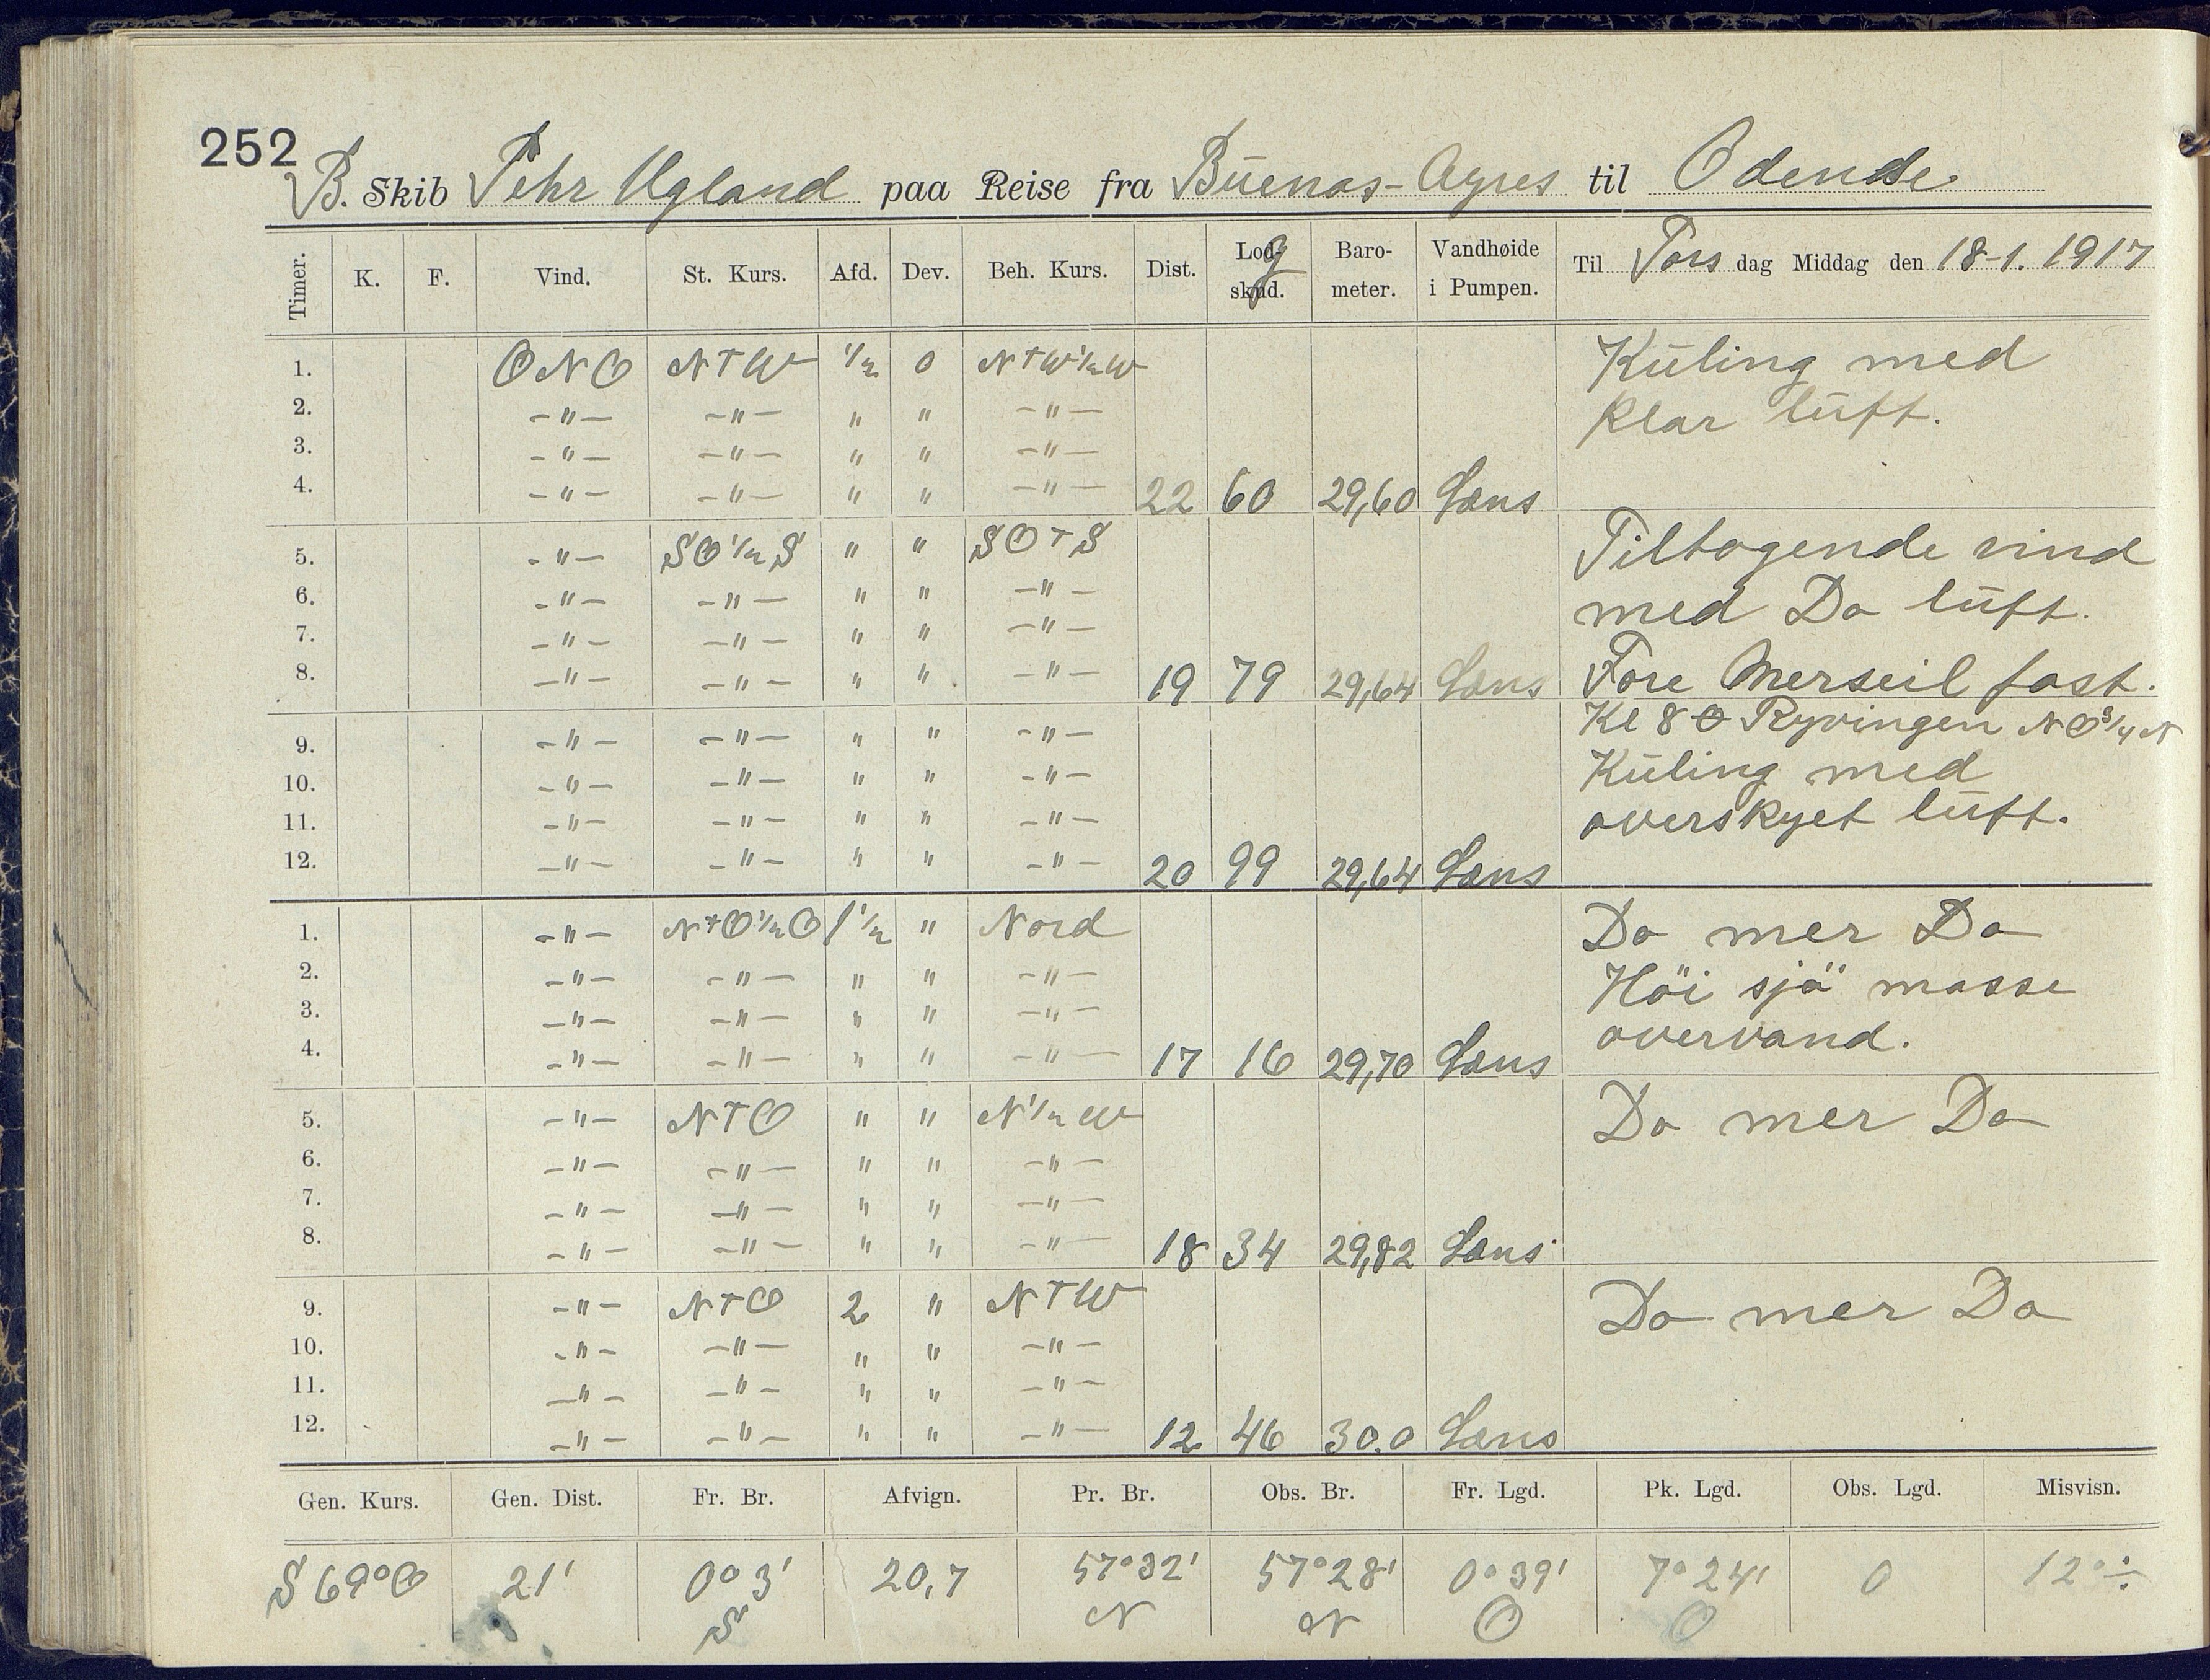 252
B. Skib Pehr Ugland paa Reise fra Buenos-Ayres til Odense
Timer. K. F. Vind. St. Kurs. Afd. Dev. Beh. Kurs. Dist. Logskud. Barometer. Vandhøide i Pumpen. Til Torsdag Middag den 18-1. 1917
1. ONO NTW 1/2 0 NTW1/2W Kuling med
2. -"- -"- " " -"- klar luft.
3. -"- -"- " " -"-
4. -"- -"- " " -"- 22 60 29,60 Læns
5. -"- SO1/2S " " SOTS Tiltagende vind
6. -"- -"- " " -"- med Do luft.
7. -"- -"- " " -"-
8. -"- -"- " " -"- 19 79 29,64 Læns Fore Merseil fast.
Kl 80 Ryvingen NO3/4N
9. -"- -"- " " -"- Kuling med
10. -"- -"- " " -"- overskyet luft.
11. -"- -"- " " -"-
12. -"- -"- " " -"- 20 99 29,64 Læns
1. -"- NTO1/2O 1 1/2 " Nord Do mer Do
2. -"- -"- " " -"- Höi sjö masse
3. -"- -"- " " -"- overvand.
4. -"- -"- " " -"- 17 16 29,70 Læns
5. -"- NTO " " N1/2W Do mer Do
6. -"- -"- " " -"-
7. -"- -"- " " -"-
8. -"- -"- " " -"- 18 34 29,82 Læns
9. -"- NTO 2 " NTW Do mer Do
10. -"- -"- " " -"-
11. -"- -"- " " -"-
12. -"- -"- " " -"- 12 46 30.0 Læns
Gen. Kurs. Gen. Dist. Fr. Br. Afvign. Pr. Br. Obs. Br. Fr. Lgd. Pk. Lgd. Obs. Lgd. Misvisn.
S 69°O 21' 0° 3' 20,7 57°32' 57°28' 0°39' 7°24' 0 12°÷
S N N O O